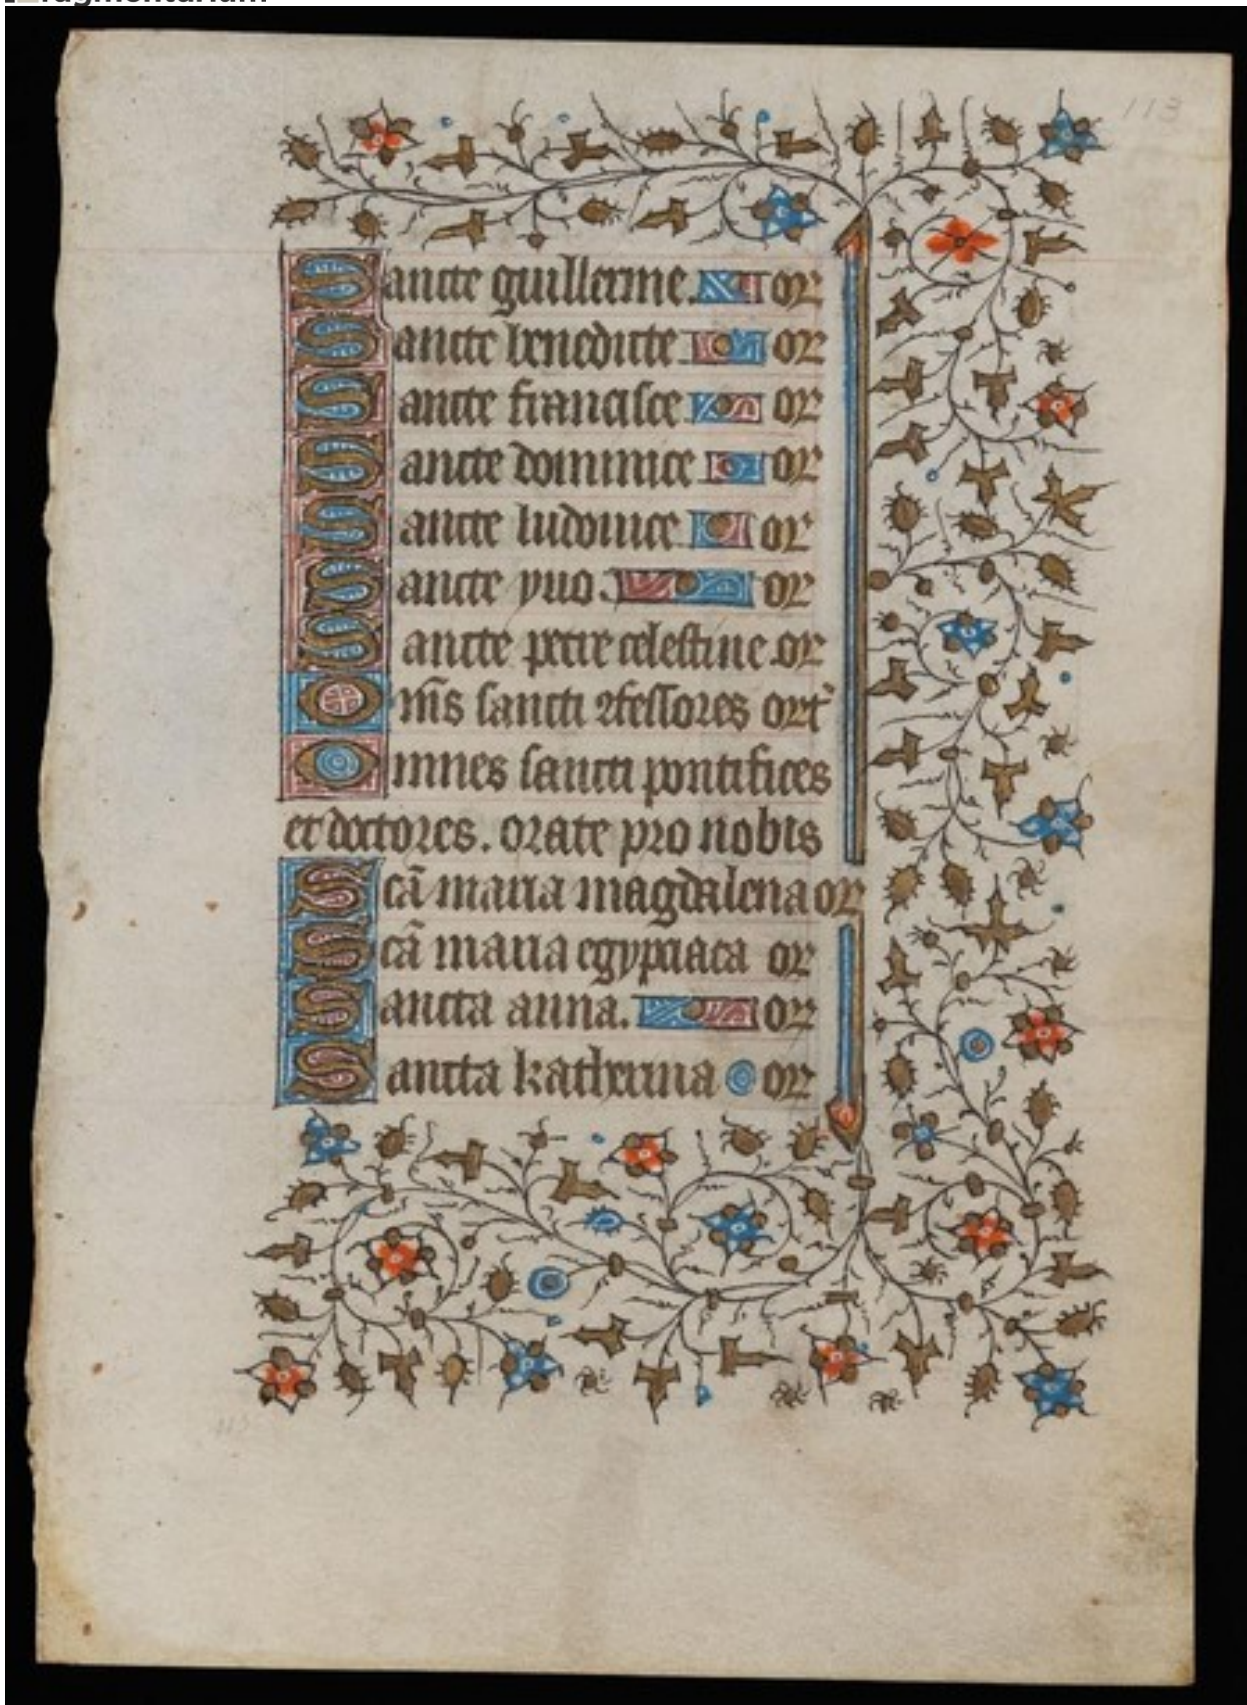 113
Sancte guillerme. or
Sancte benedicte or
Sancte francisce or
Sancte dominice or
Sancte ludouice or
Sancte yuo. or
Sancte petre celestine or
Om̅s sancti ꝯfessores ort᷑
Omnes sancti pontifices
et doctores. orate pro nobis
Scā maria magdalena or
Scā maria egyptiaca or
Sancta anna. or
Sancta katherina or
113